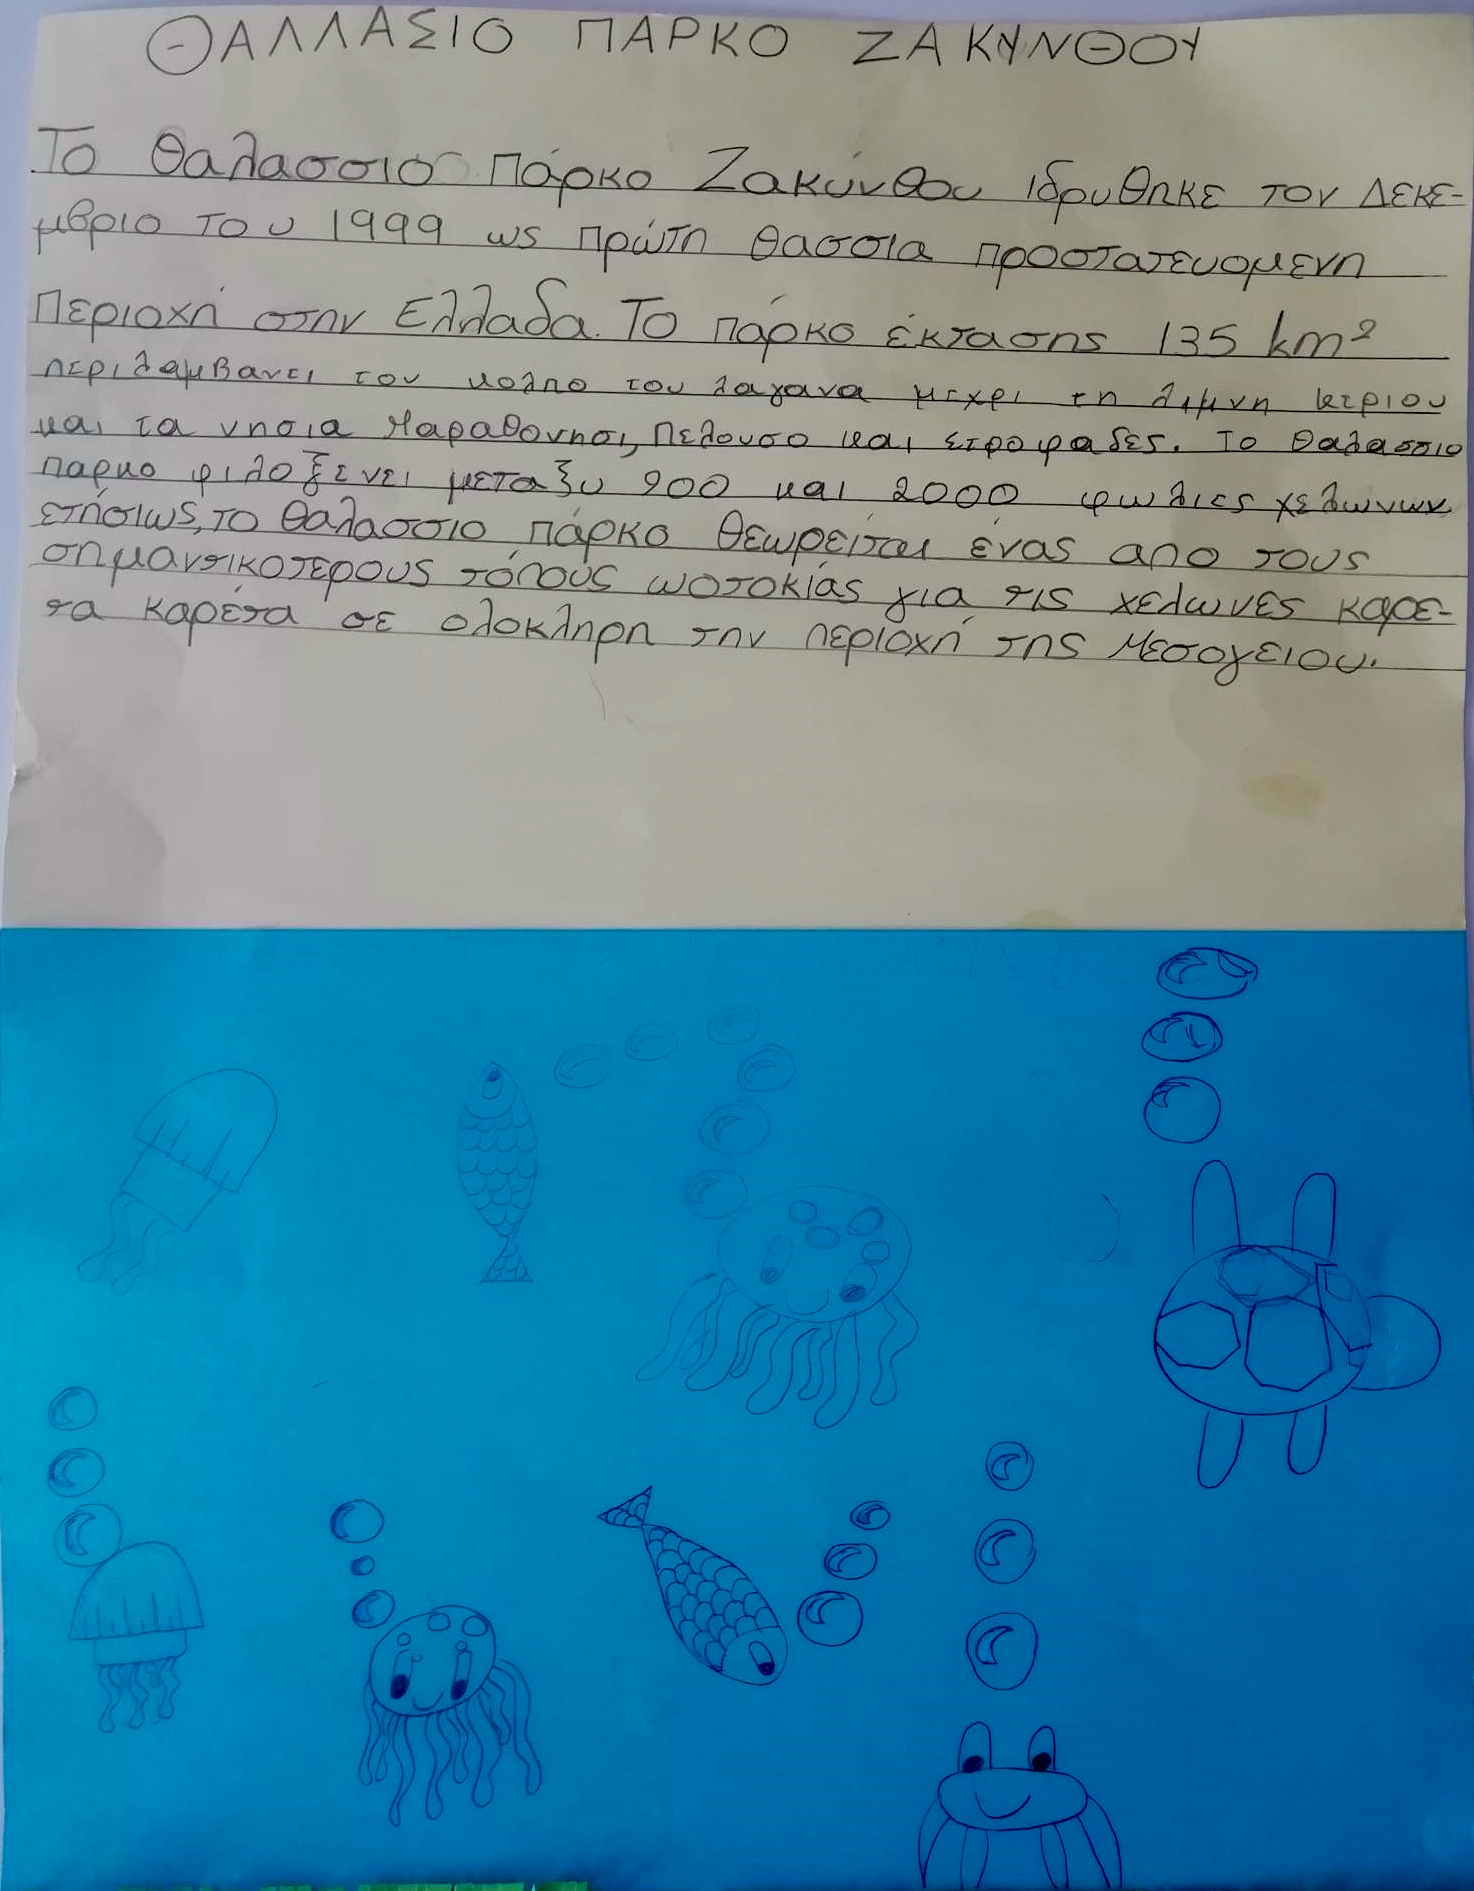 ΘΑΛΛΑΣΙΟ ΠΑΡΚΟ ΖΑΚΥΝΘΟΥ
Το Θαλασσιο Πάρκο Ζακύνθου ιδρυθηκε τον Δεκε-
μβριο του 1999 ως πρώτη θασσια προστατευομενη
Περιοχή στην Ελλαδα. Το πάρκο έκτασης 135 km²
περιλαμβανει τον κολπο του λαγανα μεχρι τη λιμνη κεριου
και τα νησια Μαραθονησι, Πελουσο και Στροφαδες. Το Θαλασσιο
παρκο φιλοξενει μεταξυ 900 και 2000 φωλιες χελωνων
ετήσιως, το θαλασσιο πάρκο θεωρείται ένας απο τους
σημαντικοτερους τόπους ωοτοκίας για τις χελωνες καρε-
τα καρέτα σε ολοκληρη την περιοχή της Μεσογειου.